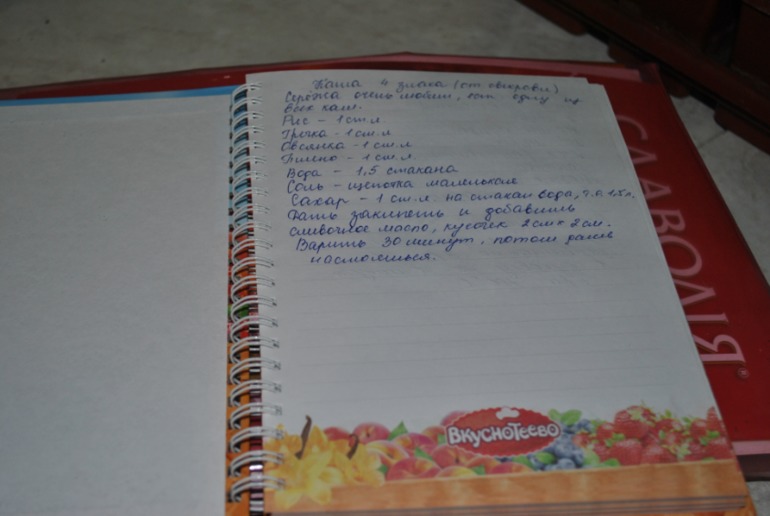 Каша 4 злака (от свекрови)
Серёжа очень любит, ест одну из
всех каш.
Рис - 1 ст.л
Гречка - 1 ст.л
Овсянка - 1 ст.л
Пшено - 1 ст.л.
Вода - 1,5 стакана
Соль - щепотка маленькая
Сахар - 1 ст.л. на стакан воды, т.е. 1,5 л.
Дать закипеть и добавить
сливочное масло, кусочек 2 см х 2 см.
Варить 30 минут, потом дать
настояться.
ВКУСНОТЕЕВО
СЛАВОЛІЯ®